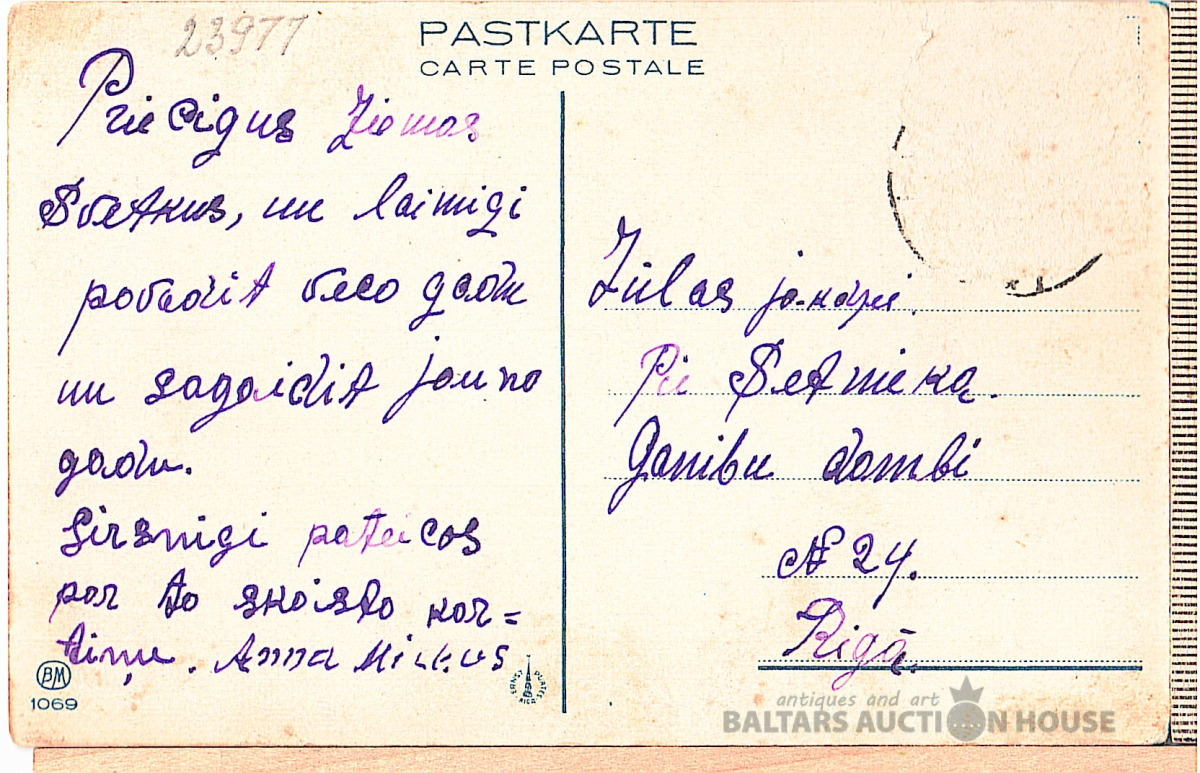 23977
PASTKARTE
CARTE POSTALE
Priecigus Ziemas
Svetkus, un laimigi
pavadit veco gadu
un sagaidit jauno
gadu.
Sirsnigi pateicos
par to skaisto kar=
tiņu. Anna
BM
1069
Zūlas
Pie
Ganibu dambi
№ 24.
Rigā.
antiques and art
BALTARS AUCTION HOUSE